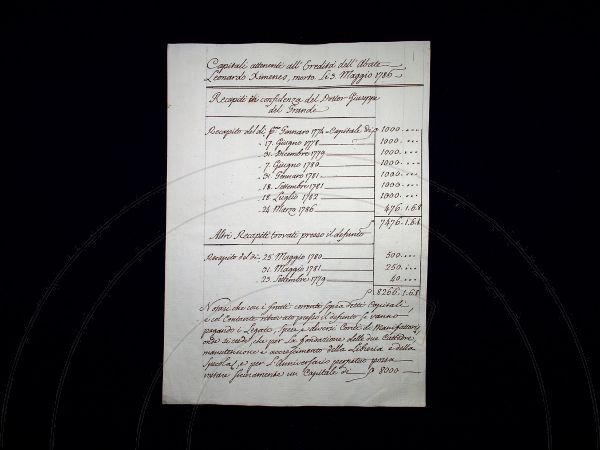 Capitali attenenti all'Eredità dell'Abate
Leonardo Ximenes, morto li 3. Maggio 1786
Recapiti in confidenza del Dottor Giuseppe
del Grande
Recapito del dì pmo Gennaro 1774 - Capitale di 1000. . . .
17. Giugno 1778 1000. . . .
31. Dicembre 1779 1000. . . .
7. Giugno 1780 1000. . . .
31. Gennaro 1781 1000. . . .
18. Settembre 1781 1000. . . .
18. Luglio 1782 1000. . . .
24. Marzo 1786 476. 1. 6. 8
7476. 1. 6. 8
Altri Recapiti trovati presso il defunto
Recapito del dì 25. Maggio 1780 500. . . .
31. Maggio 1781 250. . . .
23. Settembre 1779 40. . . .
8266. 1. 6. 8
Notasi che con i frutti correnti sopra detti Capitali
e col Contante ritrovato presso il defunto si vanno
pagando i Legati, Spese e diversi Conti di Manifattori
onde si crede, che per la fondazione delle due Cattedre,
manutenzione e accrescimento della Libreria e della
Specola, e per l'Anniversario perpetuo possa
restare sicuramente un Capitale di 8000